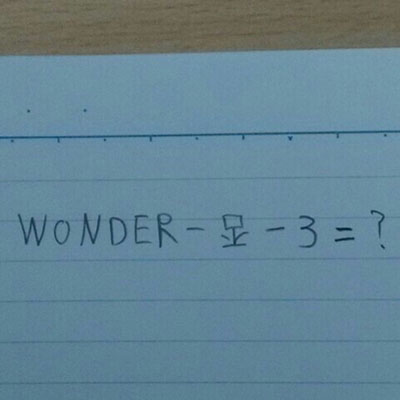 WONDER - - 3 = ?